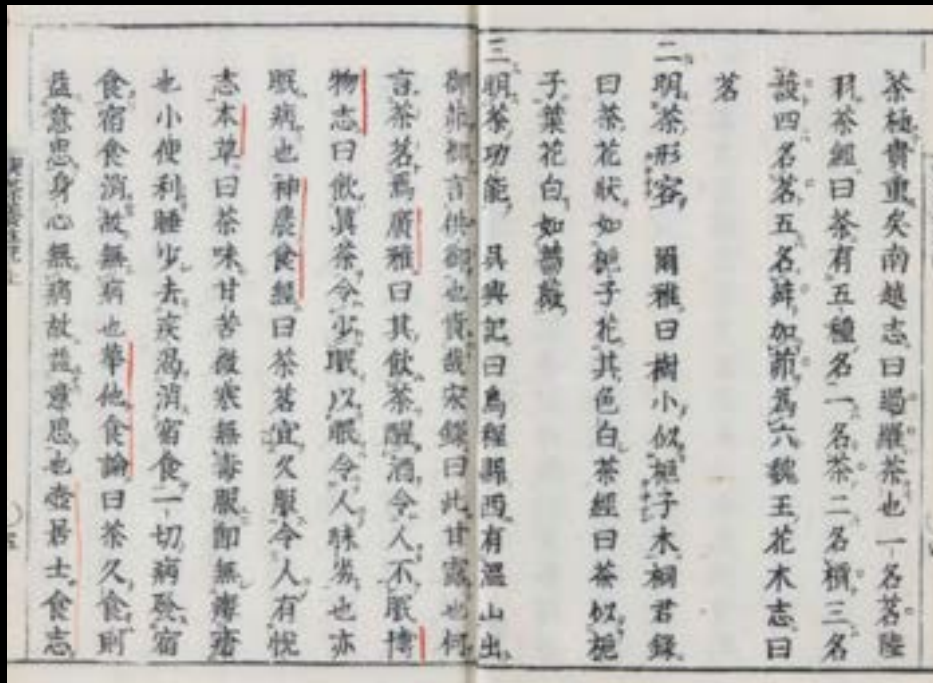 茶極貴重矣南越志曰過羅茶也一名茗陸
羽茶經曰茶有五種名一名茶二名檟三名
蔎四名茗五名荈加葭為六魏王花木志曰
茗
二明茶形容 爾雅曰樹小似梔子木桐君錄
曰茶花狀如梔子花其色白茶經曰茶似梔
子葉花白如薔薇
三明茶功能 吳興記曰烏程縣西有溫山出
御荈御言供御也貴哉宋錄曰此甘露也何
言茶茗焉廣雅曰其飲茶醒酒令人不眠博
物志曰飲真茶令少眠以眠令人昧劣也亦
眠病也神農食經曰茶茗宜久服令人有悅
志本草曰茶味甘苦微寒無毒服即無瘻瘡
也小便利睡少去疾渴消宿食一切病發宿
食宿食消故無病也華他食論曰茶久食則
益意思身心無病故益意思也壺居士食志